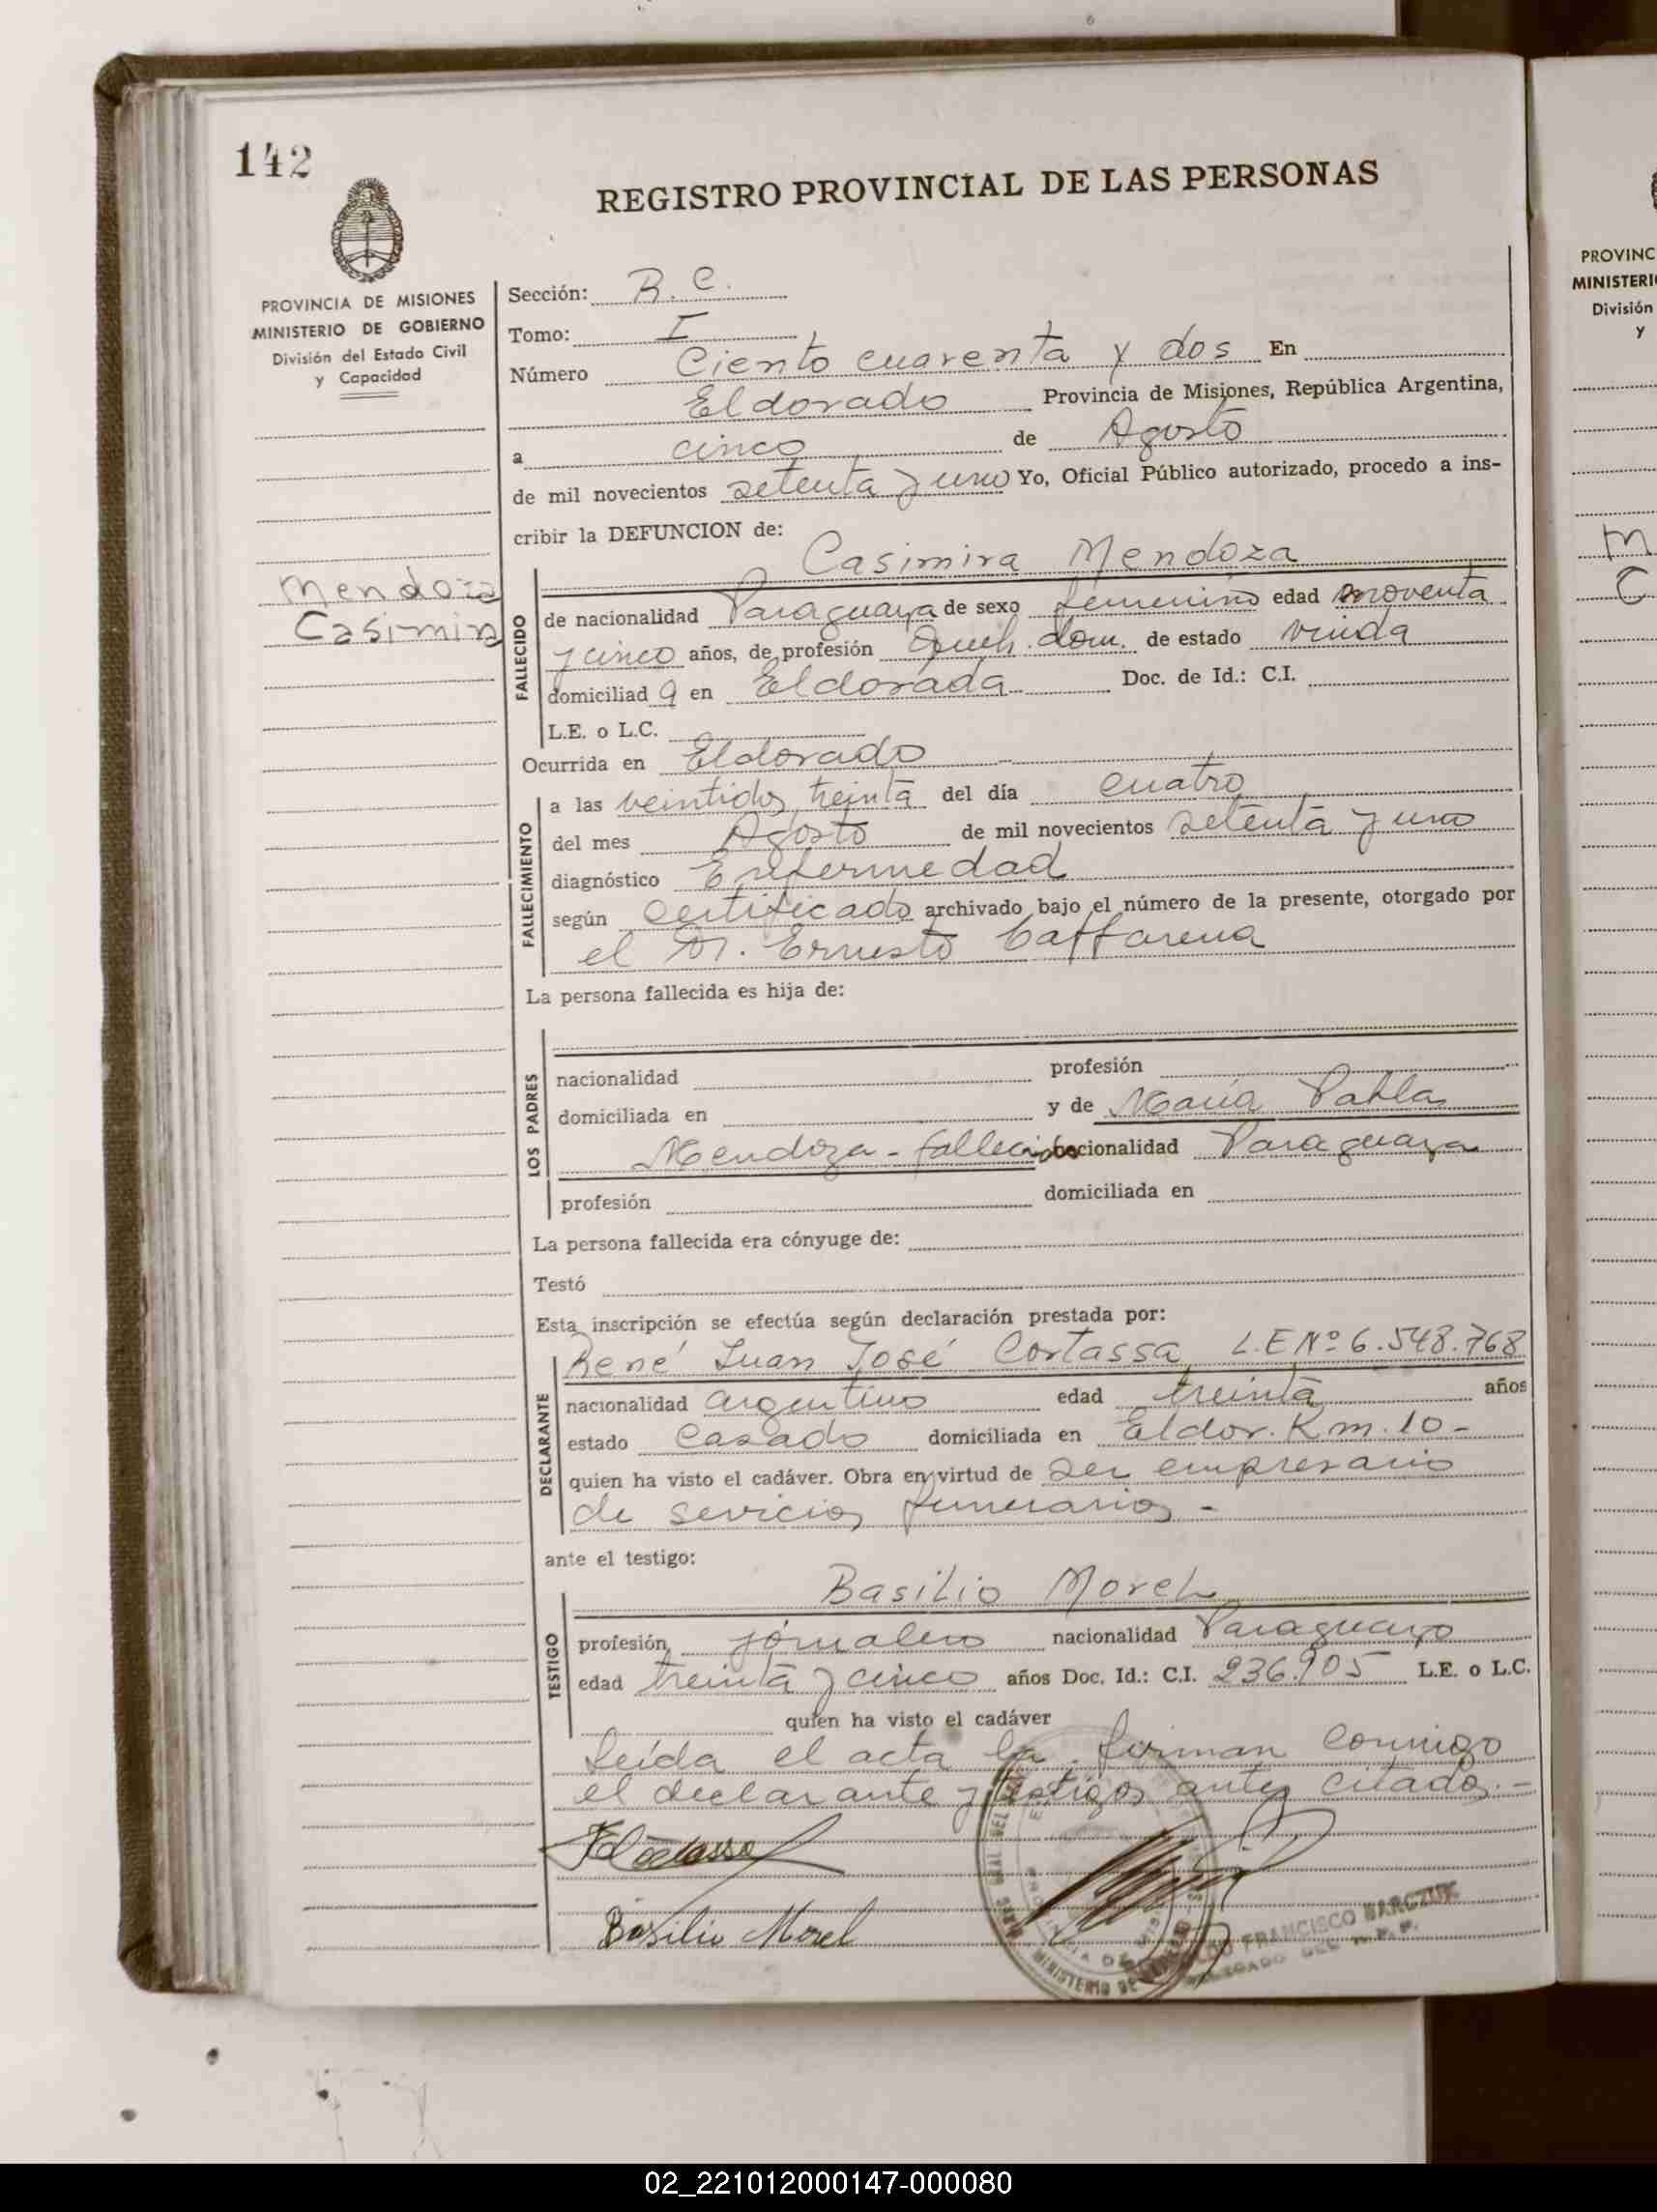 142
REGISTRO PROVINCIAL DE LAS PERSONAS
PROVINCIA DE MISIONES
MINISTERIO DE GOBIERNO
División del Estado Civil
y Capacidad
Mendoza
Casimira
Sección: R. C.
Tomo: I
Número Ciento cuarenta y dos En
Eldorado Provincia de Misiones, República Argentina,
a cinco de Agosto
de mil novecientos setenta y uno Yo, Oficial Público autorizado, procedo a ins-
cribir la DEFUNCION de:
Casimira Mendoza
FALLECIDO
de nacionalidad Paraguaya de sexo femenino edad noventa
y cinco años, de profesión Queh. dom. de estado viuda
domiciliad a en Eldorado Doc. de Id.: C.I.
L.E. o L.C.
Ocurrida en Eldorado
FALLECIMIENTO
a las veintidos treinta del día cuatro
del mes Agosto de mil novecientos setenta y uno
diagnóstico Enfermedad
según Certificado archivado bajo el número de la presente, otorgado por
el Dr. Ernesto Caffarena
La persona fallecida es hija de:
LOS PADRES
nacionalidad profesión
domiciliada en y de María Pabla
Mendoza - fallecida nacionalidad Paraguaya
profesión domiciliada en
La persona fallecida era cónyuge de:
Testó
Esta inscripción se efectúa según declaración prestada por:
DECLARANTE
René Juan José Cortassa L.E Nº 6.548.768
nacionalidad argentino edad treinta años
estado Casado domiciliada en Eldor. Km. 10 -
quien ha visto el cadáver. Obra en virtud de ser empresario
de sevicios funerarios -
ante el testigo:
Basilio Morel
TESTIGO
profesión jornalero nacionalidad Paraguayo
edad treinta y cinco años Doc. Id.: C.I. 236.905 L.E. o L.C.
quien ha visto el cadáver
Leída el acta la firman conmigo
el declarante y testigos antes citados.-
Basilio Morel
FRANCISCO BARCZUK
PROVINC
MINISTERI
División
y
M
C
02_221012000147-000080